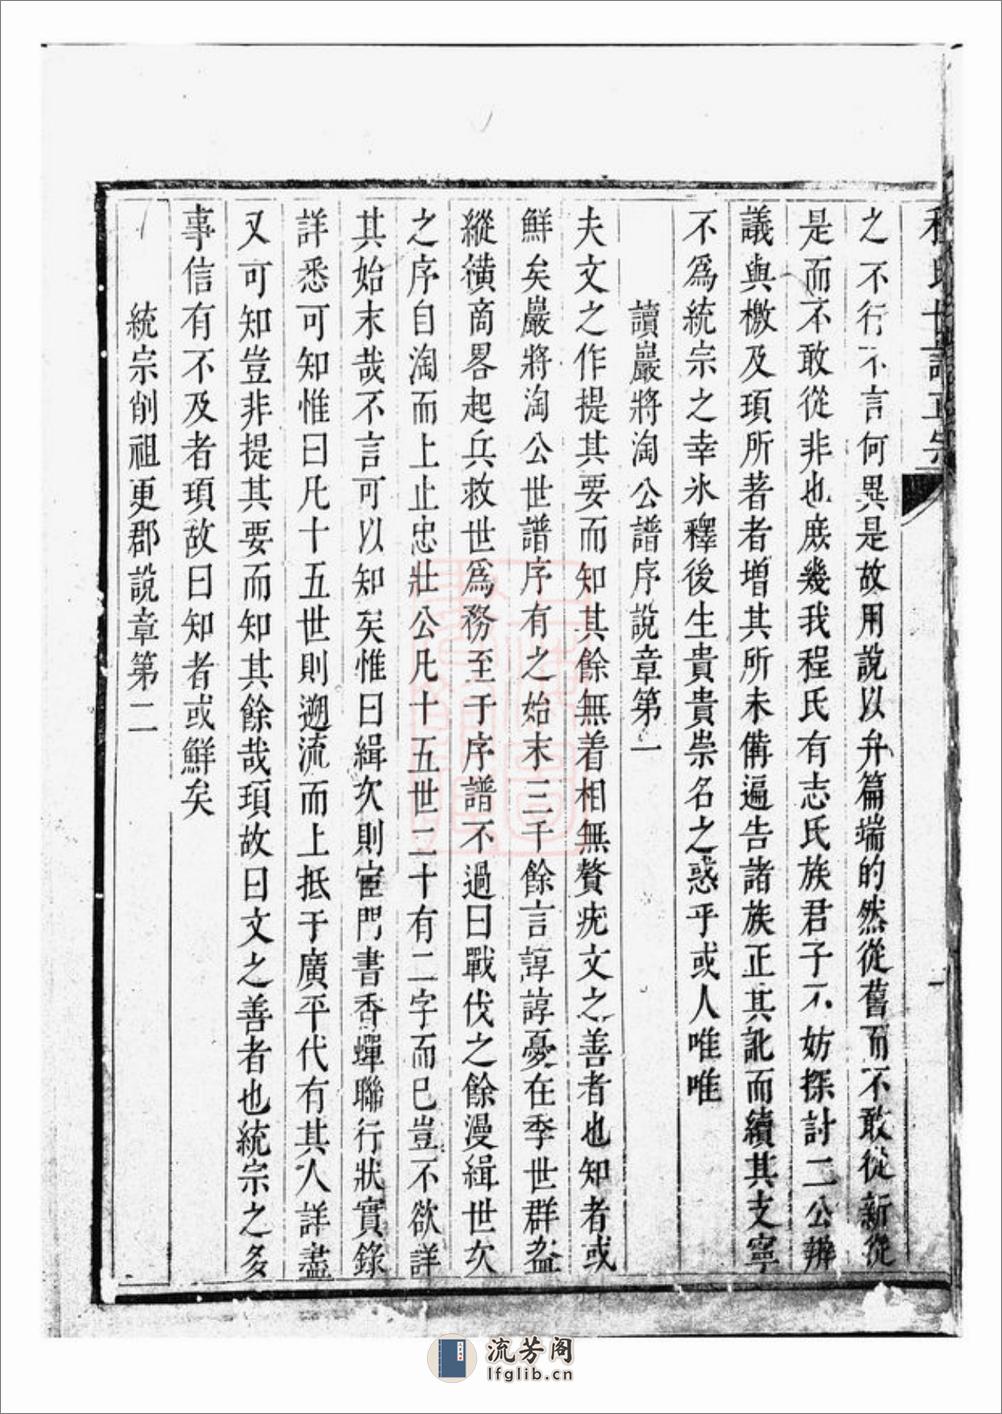 程氏世譜正宗
之不行不言何異是故用說以弁篇端的然從舊而不敢從新從
是而不敢從非也庶幾我程氏有志氏族君子不妨探討二公辨
議與檄及項所著者增其所未備遍告諸族正其訛而續其支寧
不爲統宗之幸氷釋後生貴貴崇名之惑乎或人唯唯
讀巖將淘公譜序說章第一
夫文之作提其要而知其餘無着相無贅疣文之善者也知者或
鮮矣巖將淘公世譜序有之始末三千餘言諄諄憂在季世群盗
縱横商畧起兵救世爲務至于序譜不過曰戰伐之餘漫緝世次
之序自淘而上止忠壯公凡十五世三十有二字而已豈不欲詳
其始末哉不言可以知矣惟曰緝次則宦門書香蟬聯行狀實錄
詳悉可知惟曰凡十五世則遡流而上抵于廣平代有其人詳盡
又可知豈非提其要而知其餘哉項故曰文之善者也統宗之多
事信有不及者項故曰知者或鮮矣
統宗削祖更郡說章第二
流芳阁
lfglib.cn